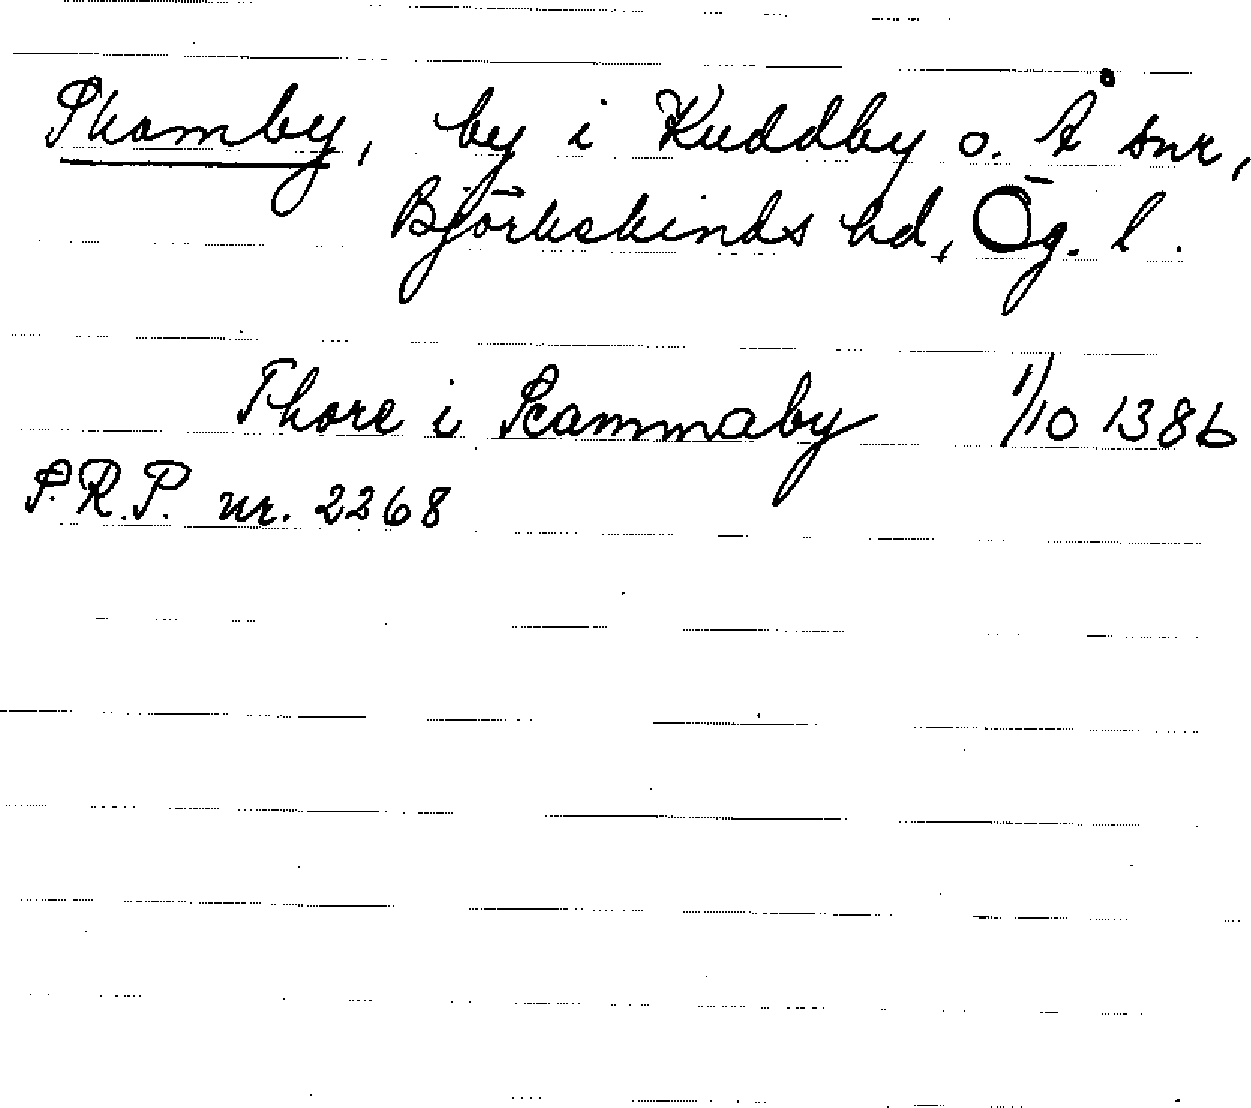 Skamby, by i Kuddby o. Å snr,
Björkekinds hd, Ög. l.
Thore i Scammaby 1/10 1386
S.R.P. nr. 2268